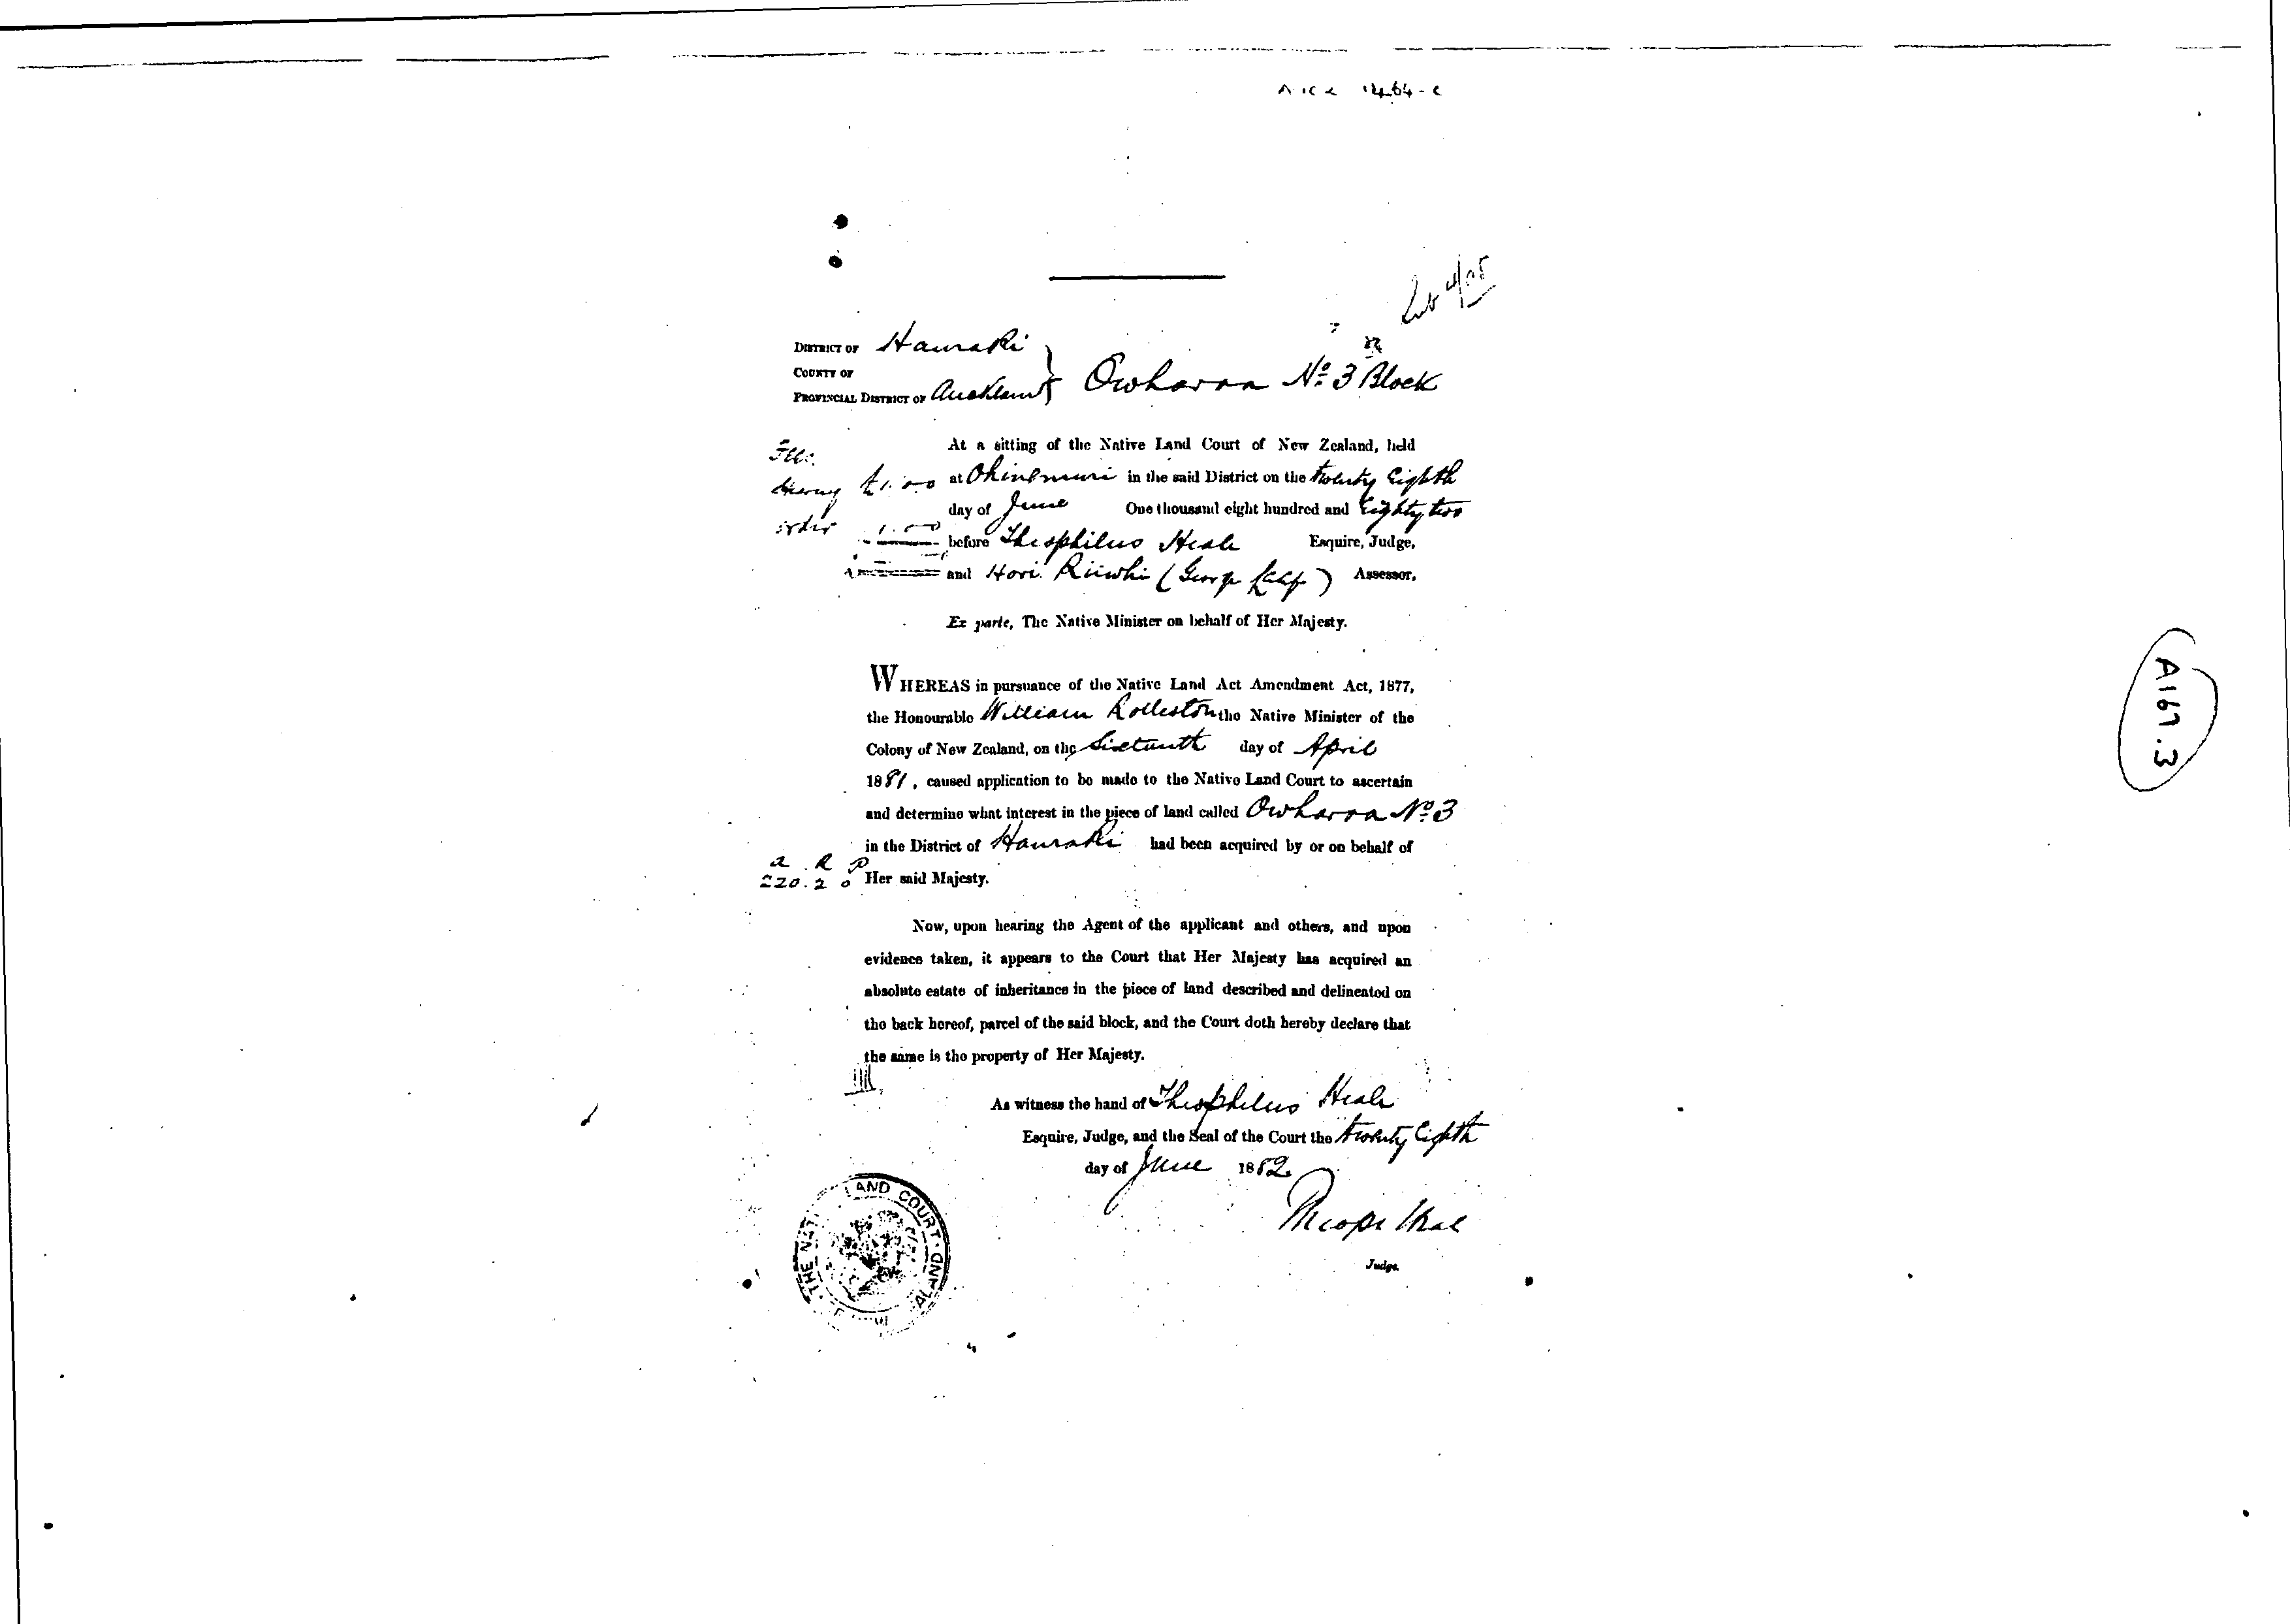 District of Hauraki
County of
Provincial District of Auckland
Owharoa Nº 3 Block
At a sitting of the Native Land Court of New Zealand, held
at Ohinemuri in the said District on the twenty Eighth
day of June One thousand eight hundred and Eighty two
before Theophilus Heale Esquire, Judge,
and Hori Riiwhi (George) Assessor,
Fees.
Hearing £1.0.0
order 1.0.0
Ex parte, The Native Minister on behalf of Her Majesty.
WHEREAS in pursuance of the Native Land Act Amendment Act, 1877,
the Honourable William Rolleston the Native Minister of the
Colony of New Zealand, on the Sixteenth day of April
1881, caused application to be made to the Native Land Court to ascertain
and determine what interest in the piece of land called Owharoa Nº 3
in the District of Hauraki had been acquired by or on behalf of
Her said Majesty.
a R P
220. 2 0
Now, upon hearing the Agent of the applicant and others, and upon
evidence taken, it appears to the Court that Her Majesty has acquired an
absolute estate of inheritance in the piece of land described and delineated on
the back hereof, parcel of the said block, and the Court doth hereby declare that
the same is the property of Her Majesty.
As witness the hand of Theophilus Heale
Esquire, Judge, and the Seal of the Court the twenty Eighth
day of June 1882
Theoph Heale
Judge.
THE LAND COURT
A1167.3